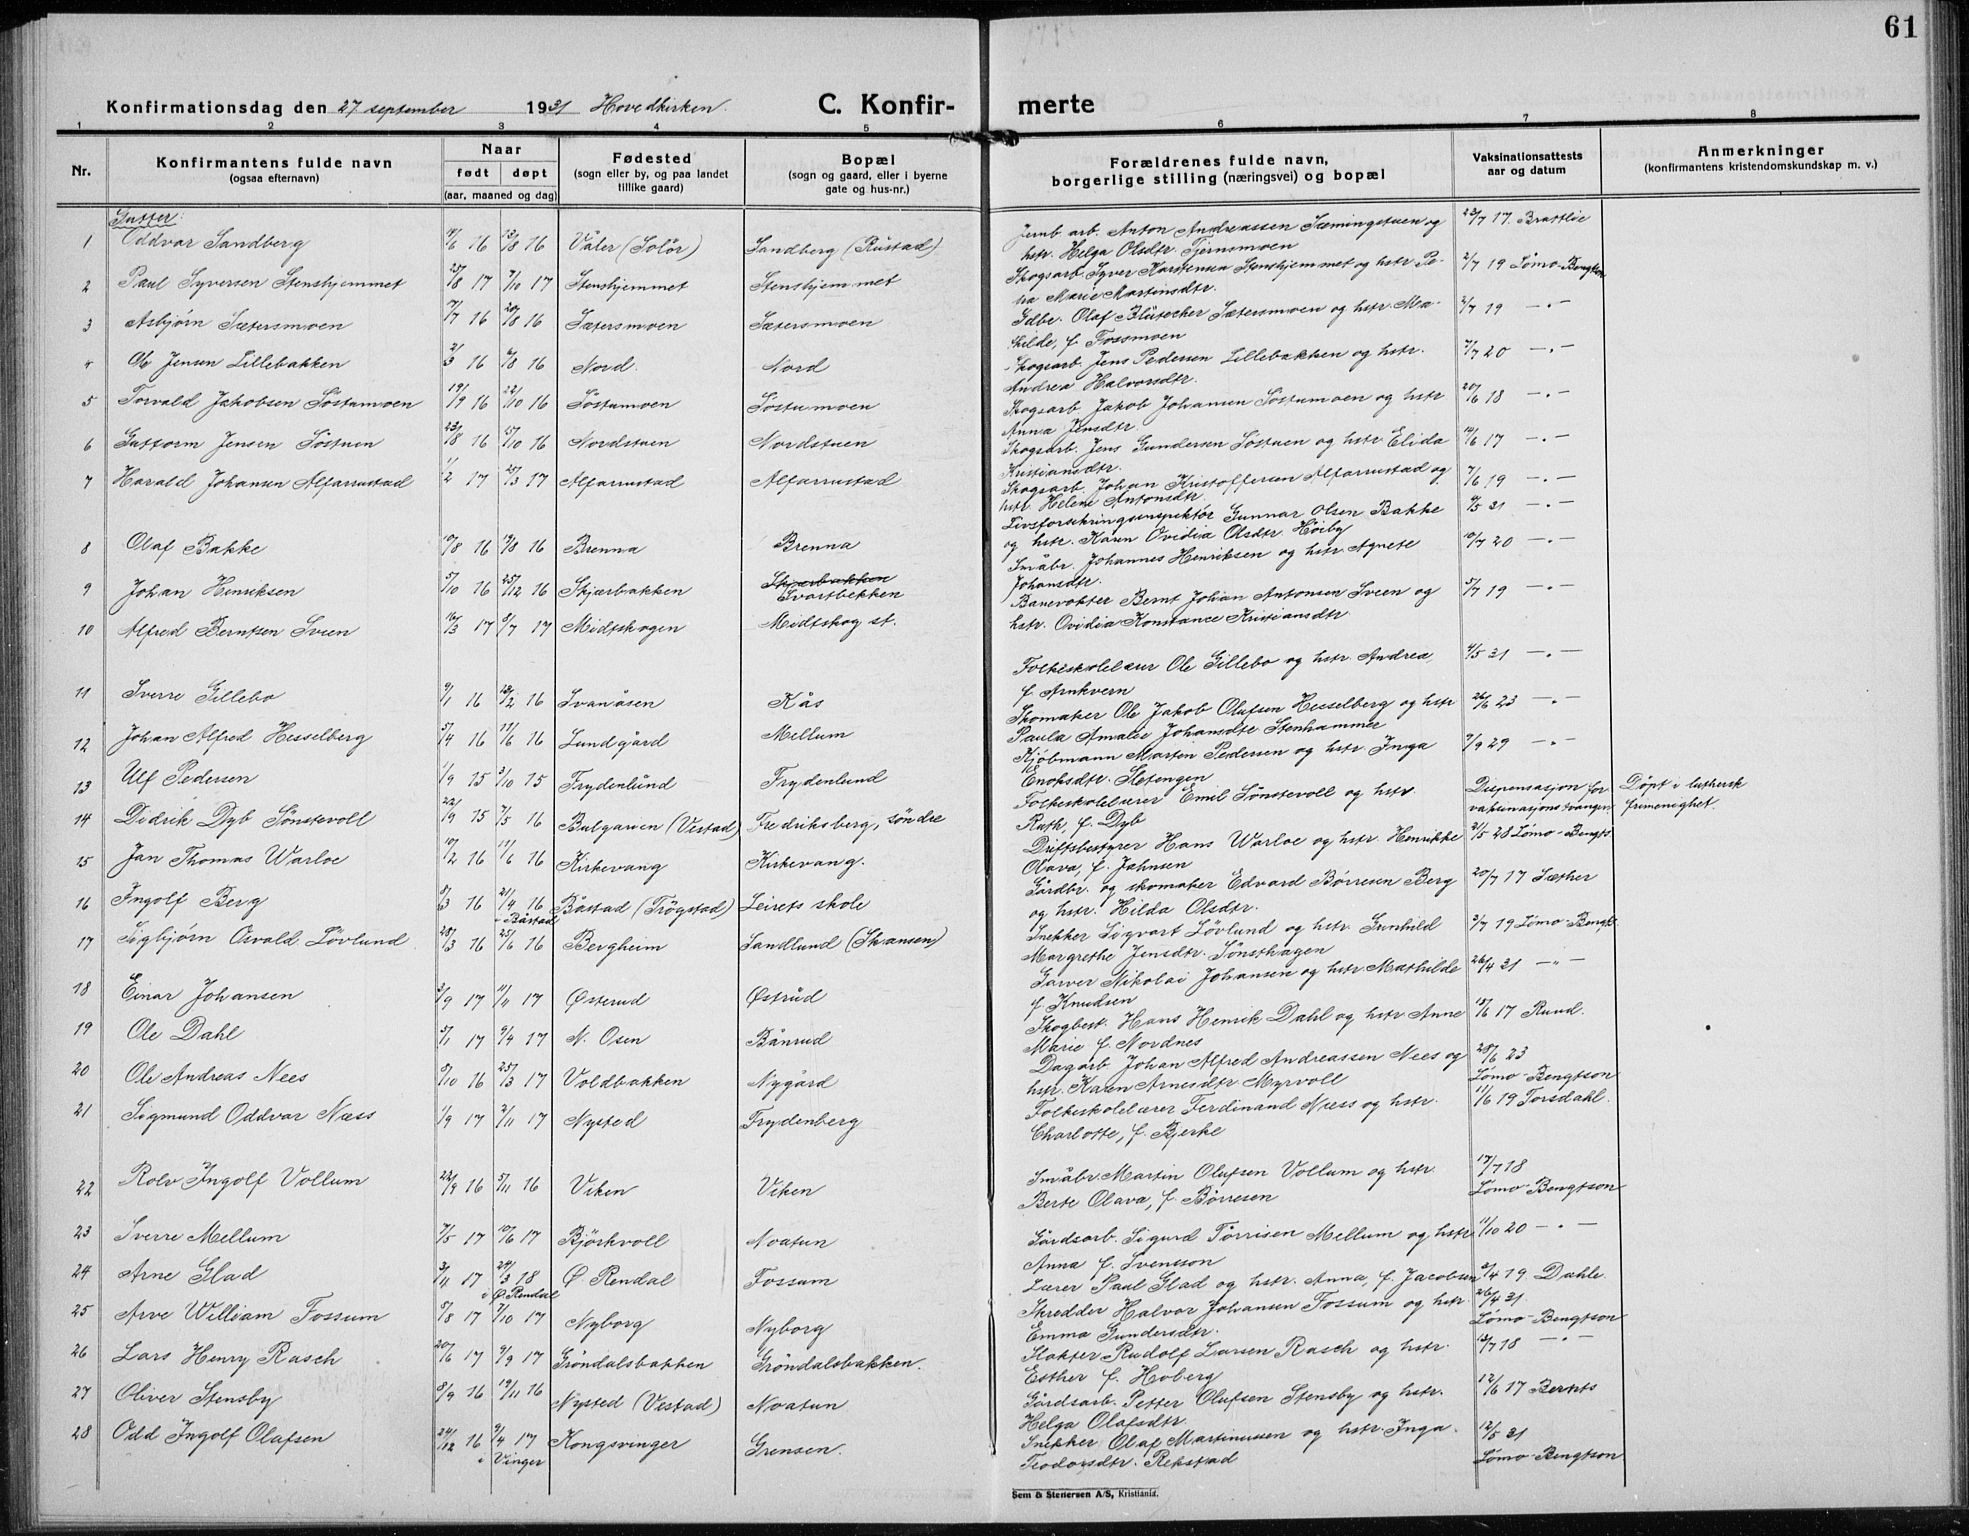 61
Konfirmationsdag den 27 september 1931 Hovedkirken. C. Konfir- merte
1 2 3 4 5 6 7 8
Nr. Konfirmantens fulde navn (ogsaa efternavn) Naar født døpt (aar, maaned og dag) Fødested (sogn eller by, og paa landet tillike gaard) Bopæl (sogn og gaard, eller i byerne gate og hus-nr.) Forældrenes fulde navn, borgerlige stilling (næringsvei) og bopæl Vaksinationsattests aar og datum Anmerkninger (konfirmantens kristendomskundskap m. v.)
Gutter:
1 Oddvar Sandberg 16 23/8 16 Våler (Solör) Sandberg (Rustad) Jernb arb. Anton Andreassen Stemingstuen og 23/7 17. Brattlie
hstr. Helga Olsdtr Tjernsmoen
2 Paul Syversen Stenshjemmet 25/8 17 7/10 17 Stenshjemmet Stenshjemmet Skogsarb Syver Karstensen Stenshjemmet og hstr Pe- 2/7 19 Lömo-Bengtson
tra Marie Martinsdtr.
3 Asbjörn Sætersmoen 7/7 16 20/8 16 Sætersmoen Sætersmoen Gdbr. Olaf Blütecher Sætersmoen og hstr. Ma- 2/7 19 —"—
thilde, f. Fossmoen
4 Ole Jensen Lillebakken 2/3 16 6/8 16 Nord. Nord Skogsarb Jens Pedersen Lillebakken og hstr. 7/7 20 —"—
Andrea Halvorsdtr.
5 Torvald Jakobsen Söstumoen 19/9 16 22/10 16 Söstumoen Söstumoen Skogsarb Jakob Johansen Söstumoen og hstr 20/6 18 —"—
Anna Jensdtr.
6 Guttorm Jensen Söstuen 23/8 16 15/10 16 Nordstuen Nordstuen Skogsarb. Jens Gundersen Söstuen og hstr Elida 14/6 17 —"—
Kristiansdtr.
7 Harald Johansen Alfarrustad 11/2 17 25/3 17 Alfarrustad Alfarrustad Skogsarb. Johan Kristoffersen Alfarrustad og 7/6 19 —"—
hstr. Helene Antonsdtr.
8 Olaf Bakke 10/8 16 16 Brenna Brenna Livsforsikringsinspektör Gunnar Olsen Bakke 31 —"—
og hstr. Karen Ovidia Olsdtr Höiby
9 Johan Henriksen 5/10 16 25/12 16 Skjærbakken Skjærbakken Svartbekken Småbr. Johannes Henriksen og hstr Agnete 10/7 20 —"—
Johansdtr.
10 Alfred Berntsen Sveen 16/3 17 8/7 17 Midtskogen Midtskog st. Banevokter Bernt Johan Antonsen Sveen og 5/7 19 —"—
hstr. Ovidia Konstance Kristiansdtr
11 Sverre Gillebo 9/1 16 13/2 16 Svanåsen Kås Folkeskolelærer Ole Gillebo og hstr. Andrea, 4/5 31 —"—
f. Arnkvern
12 Johan Alfred Hesselberg 5/4 16 11/6 16 Lundgård Mellum Skomaker Ole Jakob Olufsen Hesselberg og hstr 26/6 23 —"—
Paula Amalie Johansdtr Stenhammer
13 Ulf Pedersen 1/9 15 3/10 15 Frydenlund Frydenlund Kjöbmann Martin Pedersen og hstr. Inga 7/9 29 —"—
Enoksdtr. Sletengen
14 Didrik Dyb Sönstevoll 22/9 15 7/5 16 Bulgarien (Vestad) Fredriksberg, söndre Folkeskolelærer Emil Sönstevoll og hstr. Dispensasjon for vaksinasjonstvangen Döpt i luthersk frimenighet.
Ruth, f. Dyb
15 Jan Thomas Warloe 10/2 16 11/6 16 Kirkevang Kirkevang. Driftsbestyrer Hans Warloe og hstr. Henrikke 21/5 28 Lömo-Bengts.
Olava, f. Jahnsen
16 Ingolf Berg 8/3 16 21/4 16 i Båstad Båstad (Trögstad) Leirets skole Gårdbr. og skomaker Edvard Börresen Berg 20/7 17 Sæther
og hstr. Hilda Olsdtr.
17 Sigbjörn Osvald Lövlund 28/3 16 25/6 16 Bergheim Sandlund (Skansen) Snekker Sigvart Lövlund og hstr. Gunhild 3/7 19 Lömo-Bengt.
Margrethe Jensdtr. Sönsthagen
18 Einar Johansen 3/9 17 11/11 17 Österud Östrud Garver Nikolai Johansen og hstr. Mathilde 26/4 31 —"—
f. Knudsen
19 Ole Dahl 5/1 17 9/4 17 N. Osen Bånrud Skogbest. Hans Henrik Dahl og hstr Anne 15/6 17 Ruud.
Marie f. Nordnes
20 Ole Andreas Nees 8/10 16 25/3 17 Voldbakken Nygård Dagarb. Johan Alfred Andreassen Nees og 28/6 23 Lömo-Bengtson
hstr. Karen Arnesdtr Myrvoll
21 Sigmund Oddvar Næss 1/9 17 2/11 17 Nysted Frydenberg Folkeskolelærer Ferdinand Næss og hstr. 11/6 19 Torsdahl.
Charlotte, f. Bjerke
22 Rolv Ingolf Vollum 22/9 16 5/11 16 Viken Viken Småbr. Martin Olufsen Vollum og hstr. 17/7 18 Lömo-Bengtson
Berte Olava, f. Börresen
23 Sverre Mellum 7/5 17 10/6 17 Björkvoll Noatun Gårdsarb. Sigurd Törrisen Mellum og hstr 11/10 20 —"—
Anna f. Svensson
24 Arne Glad 3/11 17 29/3 18 i Ö Rendal Ö. Rendal Fossum Lærer Paul Glad og hstr. Anna, f. Jacobsen 2/4 19 Dahle.
25 Arve William Fossum 5/8 17 7/10 17 Nyborg Nyborg Skredder Halvor Johansen Fossum og hstr. 26/4 31. Lömo-Bengtson
Emma Gundersdtr.
26 Lars Henry Rasch 20/6 17 9/9 17 Gröndalsbakken Gröndalsbakken. Slakter Rudolf Larsen Rasch og hstr. 13/7 18 —"—
Esther f. Hoberg
27 Oliver Stensby 8/9 16 19/11 16 Nysted (Vestad) Noatun Gårdsarb. Petter Olufsen Stensby og hstr. 12/6 17 Bernts
Helga Olafsdtr.
28 Odd Ingolf Olafsen 24/12 16 9/4 17 i Vinger Kongsvinger Grensen. Snekker Olaf Martinussen og hstr. Inga 12/5 31 Lömo-Bengtson
Teodorsdtr. Rekstad
Sem & Stenersen A/S, Kristiania.